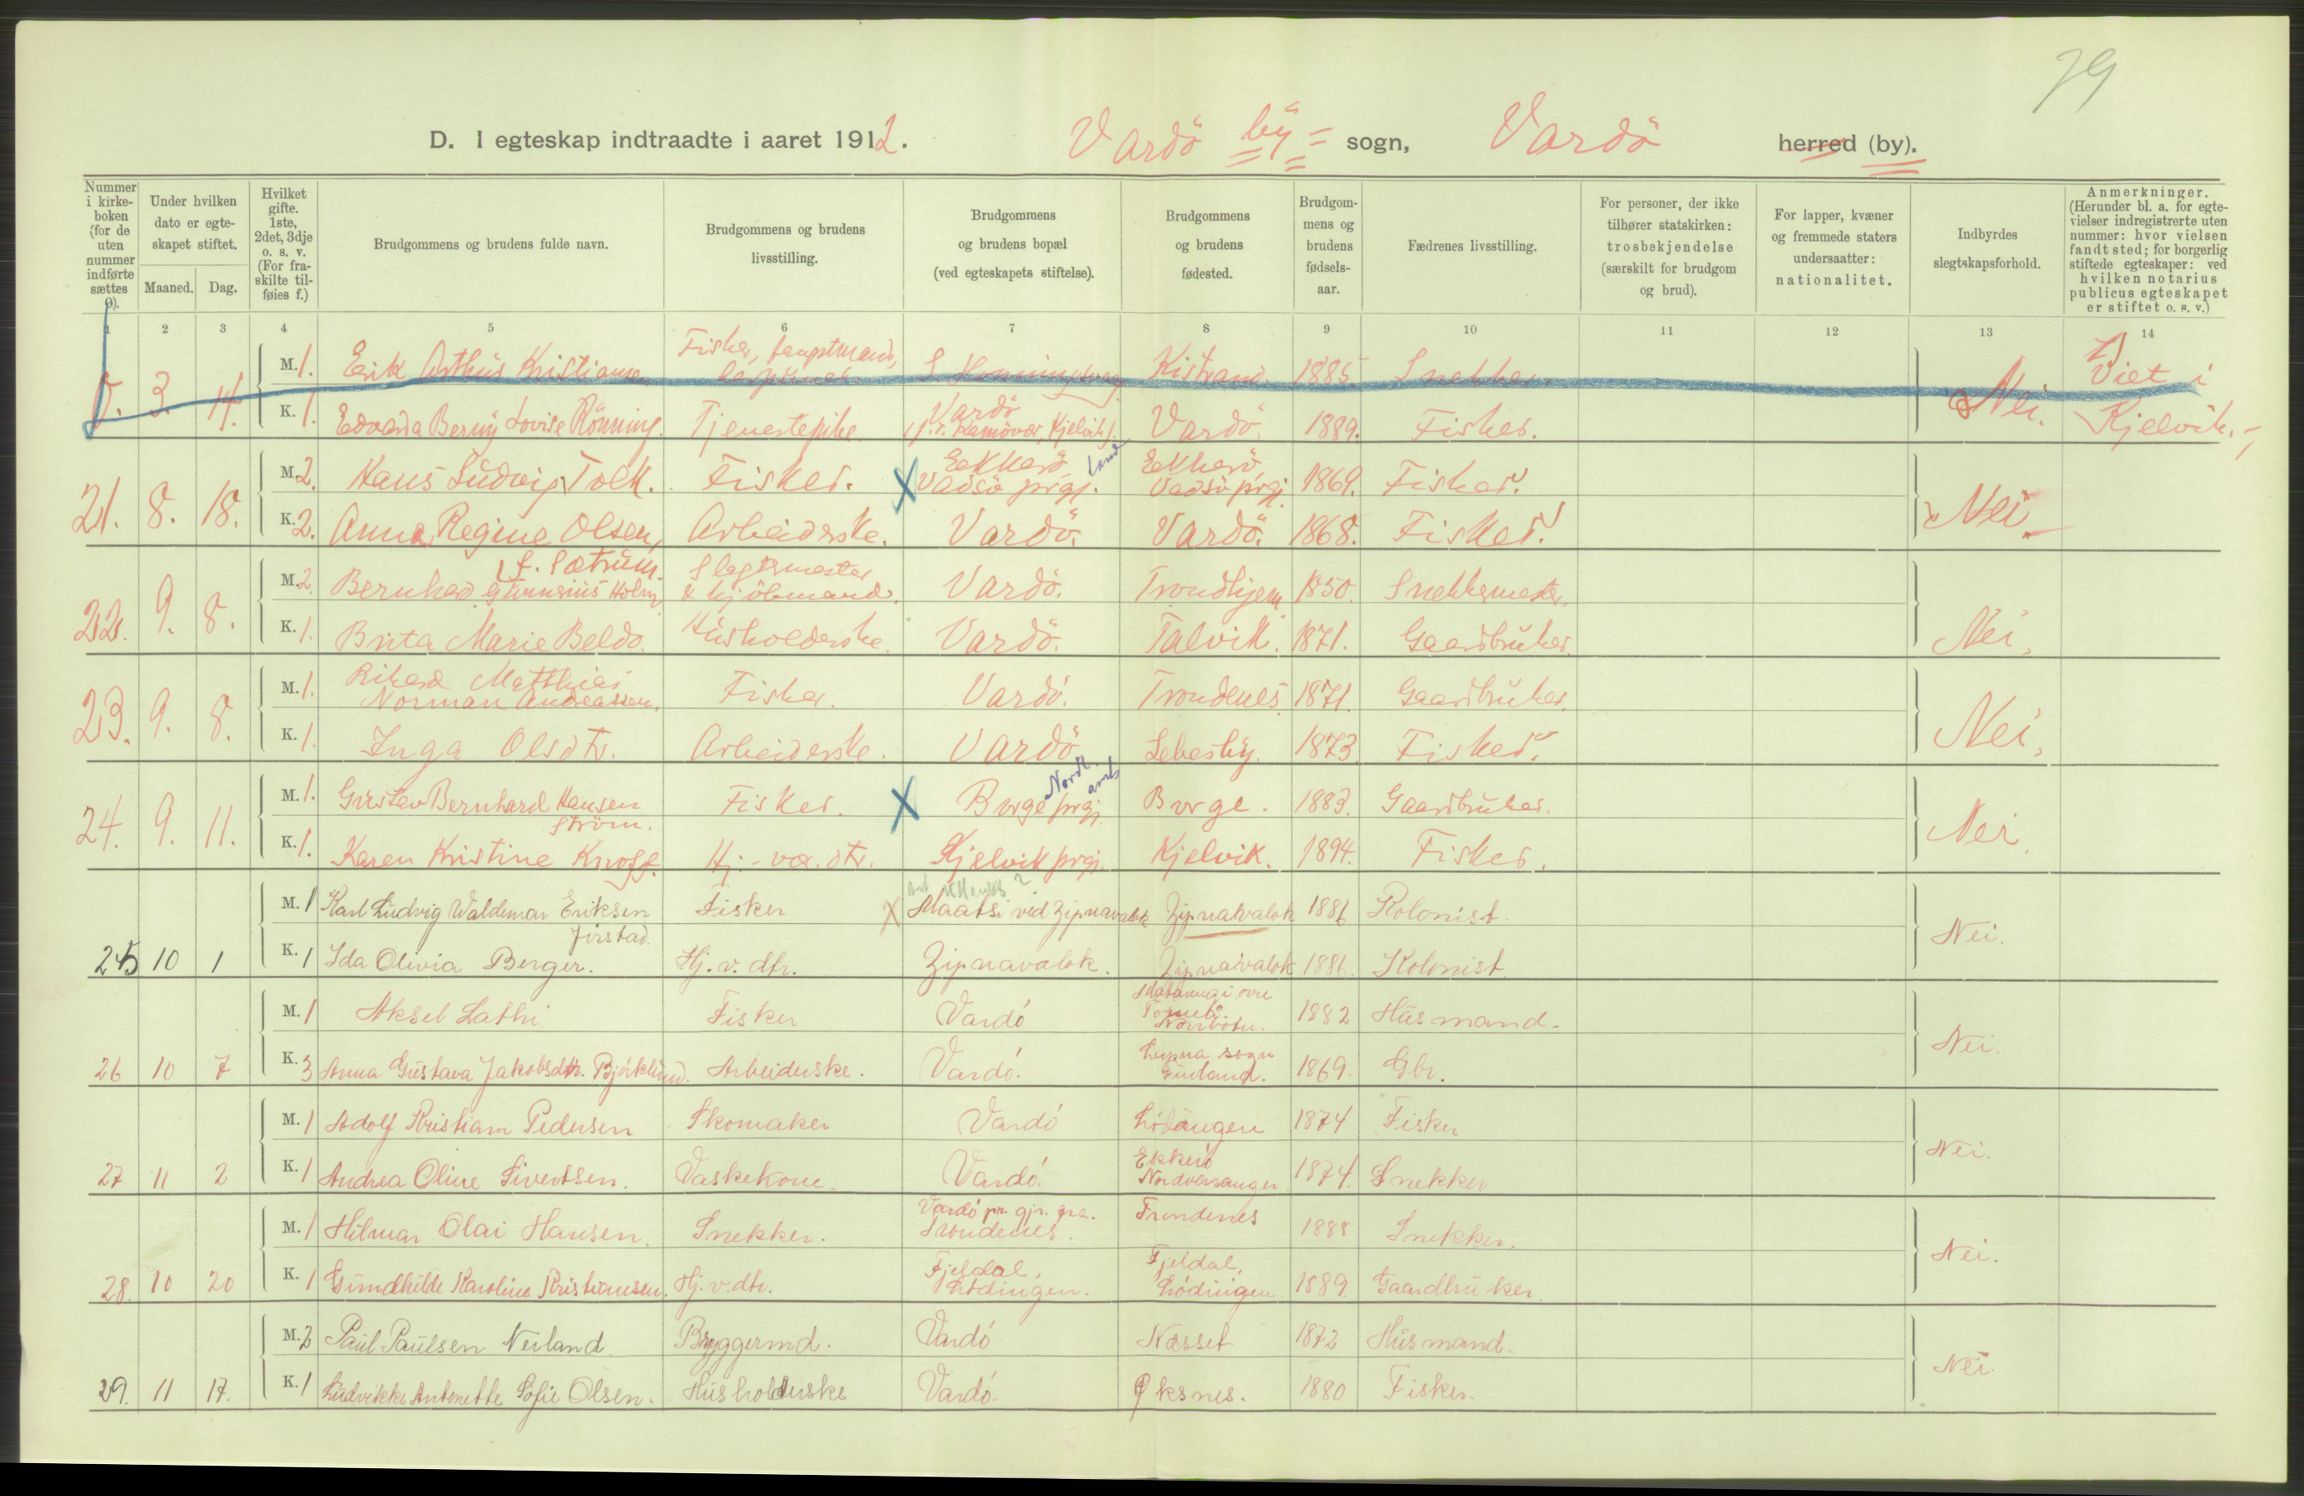 79
D. I egteskap indtraadte i aaret 1912. Vardö by = sogn, Vardö herred (by).
Nummer i kirke-boken (for de uten nummer indførte sættes 0).
Under hvilken dato er egte-skapet stiftet.
Maaned. Dag.
Hvilket gifte. 1ste, 2det, 3dje o. s. v. (For fra-skilte til-føies f.)
Brudgommens og brudens fulde navn.
Brudgommens og brudens livsstilling.
Brudgommens og brudens bopæl (ved egteskapets stiftelse).
Brudgommens og brudens fødested.
Brudgom-mens og brudens fødsels-aar.
Fædrenes livsstilling.
For personer, der ikke tilhører statskirken: trosbekjendelse (særskilt for brudgom og brud).
For lapper, kvæner og fremmede staters undersaatter: nationalitet.
Indbyrdes slegtskapsforhold.
Anmerkninger. (Herunder bl. a. for egte-vielser indregistrerte uten nummer: hvor vielsen fandt sted; for borgerlig stiftede egteskaper: ved hvilken notarius publicus egteskapet er stiftet o. s. v.)
1 2 3 4 5 6 7 8 9 10 11 12 13 14
0. 3. 14. M. 1. Erik Arthur Kristiansen Fisker, fangstmand, Honningsvaag Kistrand. 1885. Snekker. Nei. Viet i Kjelvik.
K. 1. Edvarda Berny Lovise Rönning. Tjenestepike. Vardö (f.t. Kamövær, Kjelvik). Vardö. 1889. Fisker.
21. 8. 18. M. 2. Hans Ludvig Tolk. Fisker. X Ekkerö, Vadsö prgj. land Ekkerö, Vadsö prgj. 1869. Fisker. Nei.
K. 2. Anna Regine Olsen, f. Sætrum. Arbeiderske. Vardö. Vardö. 1868. Fisker.
22. 9. 8. M. 2. Bernhard Gunnerius Holm Slagtermester & kjöbmand. Vardö. Trondhjem. 1850. Snekkermester. Nei.
K. 1. Brita Marie Beldo. Husholderske. Vardö. Talvik. 1871. Gaardbruker.
23. 9. 8. M. 1. Rikard Matthias Norman Andreassen. Fisker. Vardö. Trondenes. 1871. Gaardbruker. Nei.
K. 1. Inga Olsdtr. Arbeiderske. Vardö Lebesby. 1873. Fisker.
24. 9. 11. M. 1. Gustav Bernhard Hansen Ström. Fisker. X Borge prgj. Nordl. amt Borge. 1883. Gaardbruker. Nei.
K. 1. Karen Kristine Knoff. Hj.-vær. dtr. Kjelvik prgj. Kjelvik. 1894. Fisker.
25 10 1 M. 1 Karl Ludvig Waldemar Eriksen Jirstad. Fisker X Maatsi ved Zipnavalok Zipnavalok 1886 Kolonist. Nei.
K. 1 Ida Olivia Berger. Hj. v. dtr. Zipnavalok. Zipnavalok 1886. Kolonist
26 10 7 M. 1 Aksel Lathi Fisker Vardó Matarengi övre Torneå Norrbotn. 1882 Husmand. Nei.
K. 3 Anna Gustava Jakobsdtr. Björklund. Arbeiderske. Vardó. sogn Finland. 1869. Gbr.
27 11 2 M. 1 Adolf Kristian Pedersen Skomaker Vardó Lódingen 1874 Fisker Nei.
K. 1 Andrea Oline Sivertsen. Vaskekone. Vardó. Ekkeró Nordvaranger 1874. Snekker
28. 10 20 M. 1 Hilmar Olai Hansen. Snekker. Vardó pr. gjr. fra Trondenes. Trondenes 1888 Snekker. Nei.
K. 1 Gundhilde Karoline Kristiansen. Hj. v. dtr. Fjeldal, Lódingen. Fjeldal, Lódingen 1889. Gaardbruker.
29. 11 17. M. 2 Paul Paulsen Neiland Bryggermd. Vardó Næsset 1872 Husmand. Nei.
K. 1 Ludvikke Antonette Sofie Olsen. Husholderske Vardó. Øksnes. 1880 Fisker.